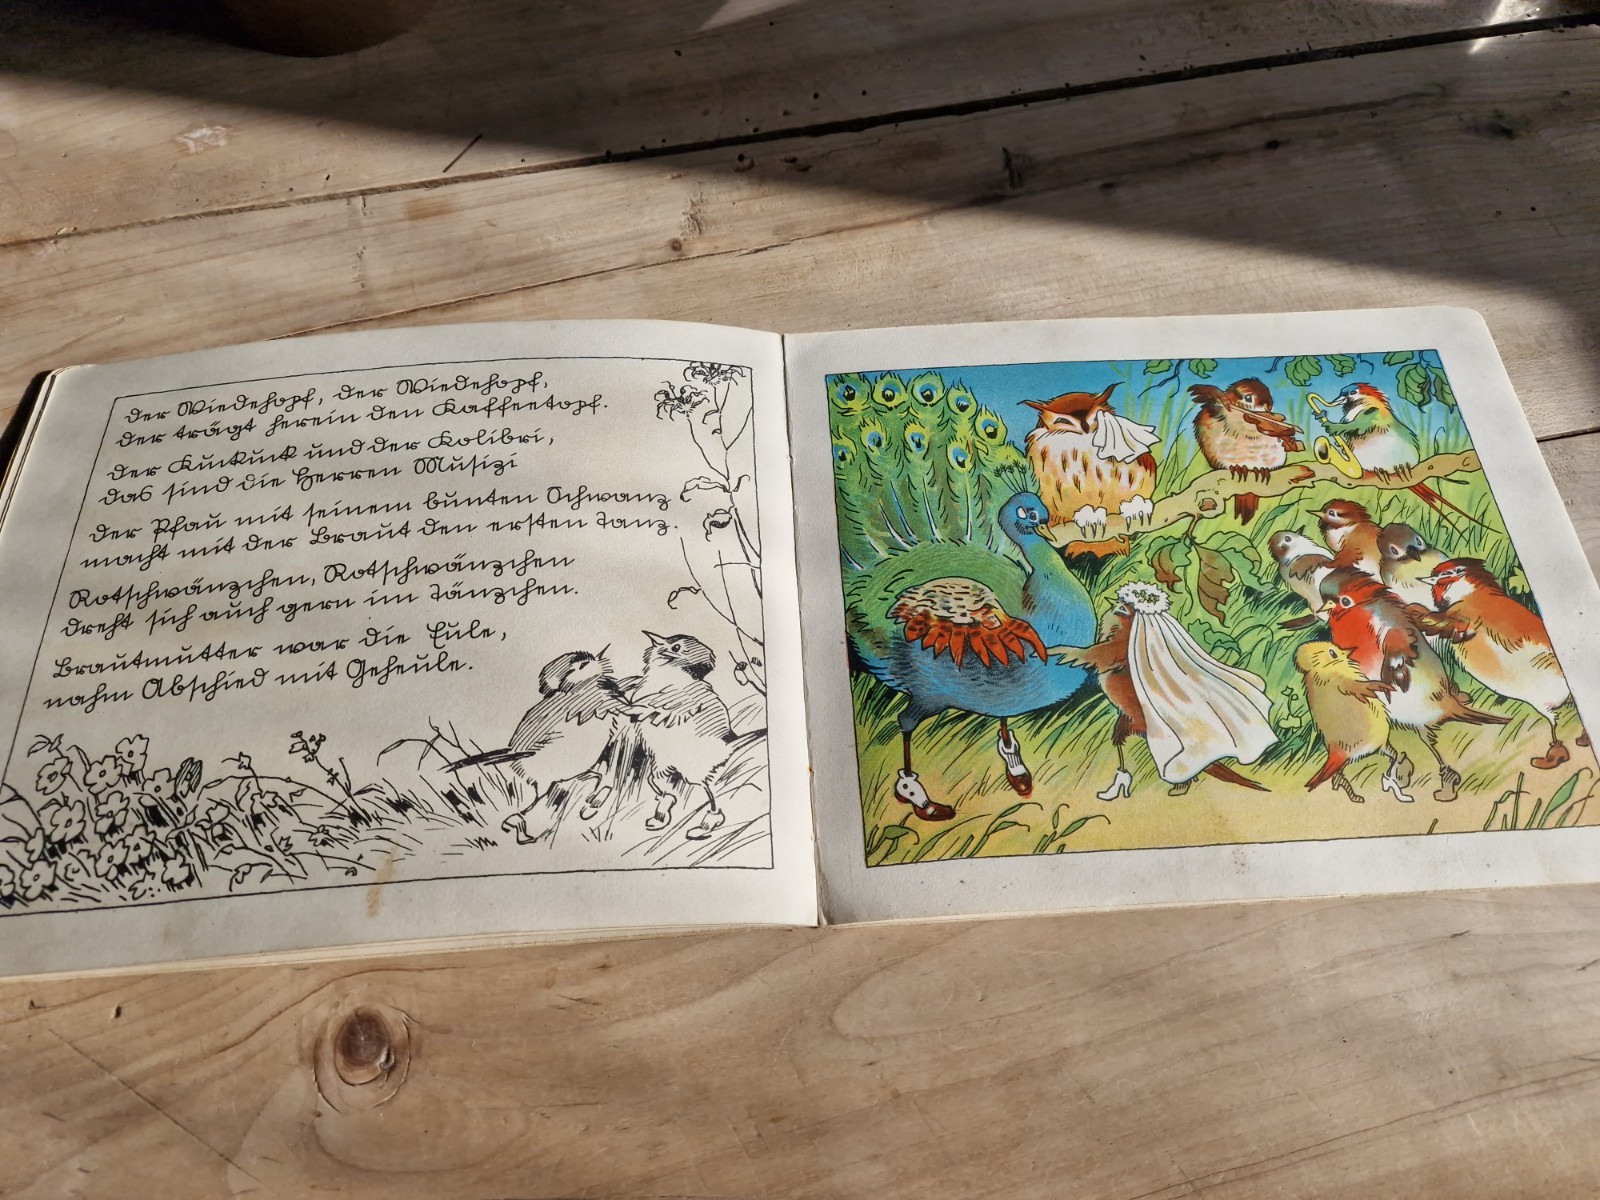 der Wiedehopf, der Wiedehopf,
der trägt herein den Kaffeetopf.
der Kuckuck und der Kolibri,
das sind die Herren Musizi
der Pfau mit seinem bunten Schwanz
macht mit der Braut den ersten Tanz.
Rotschwänzchen, Rotschwänzchen
dreht sich auch gern im Tänzchen.
Brautmutter war die Eule,
nahm Abschied mit Geheule.